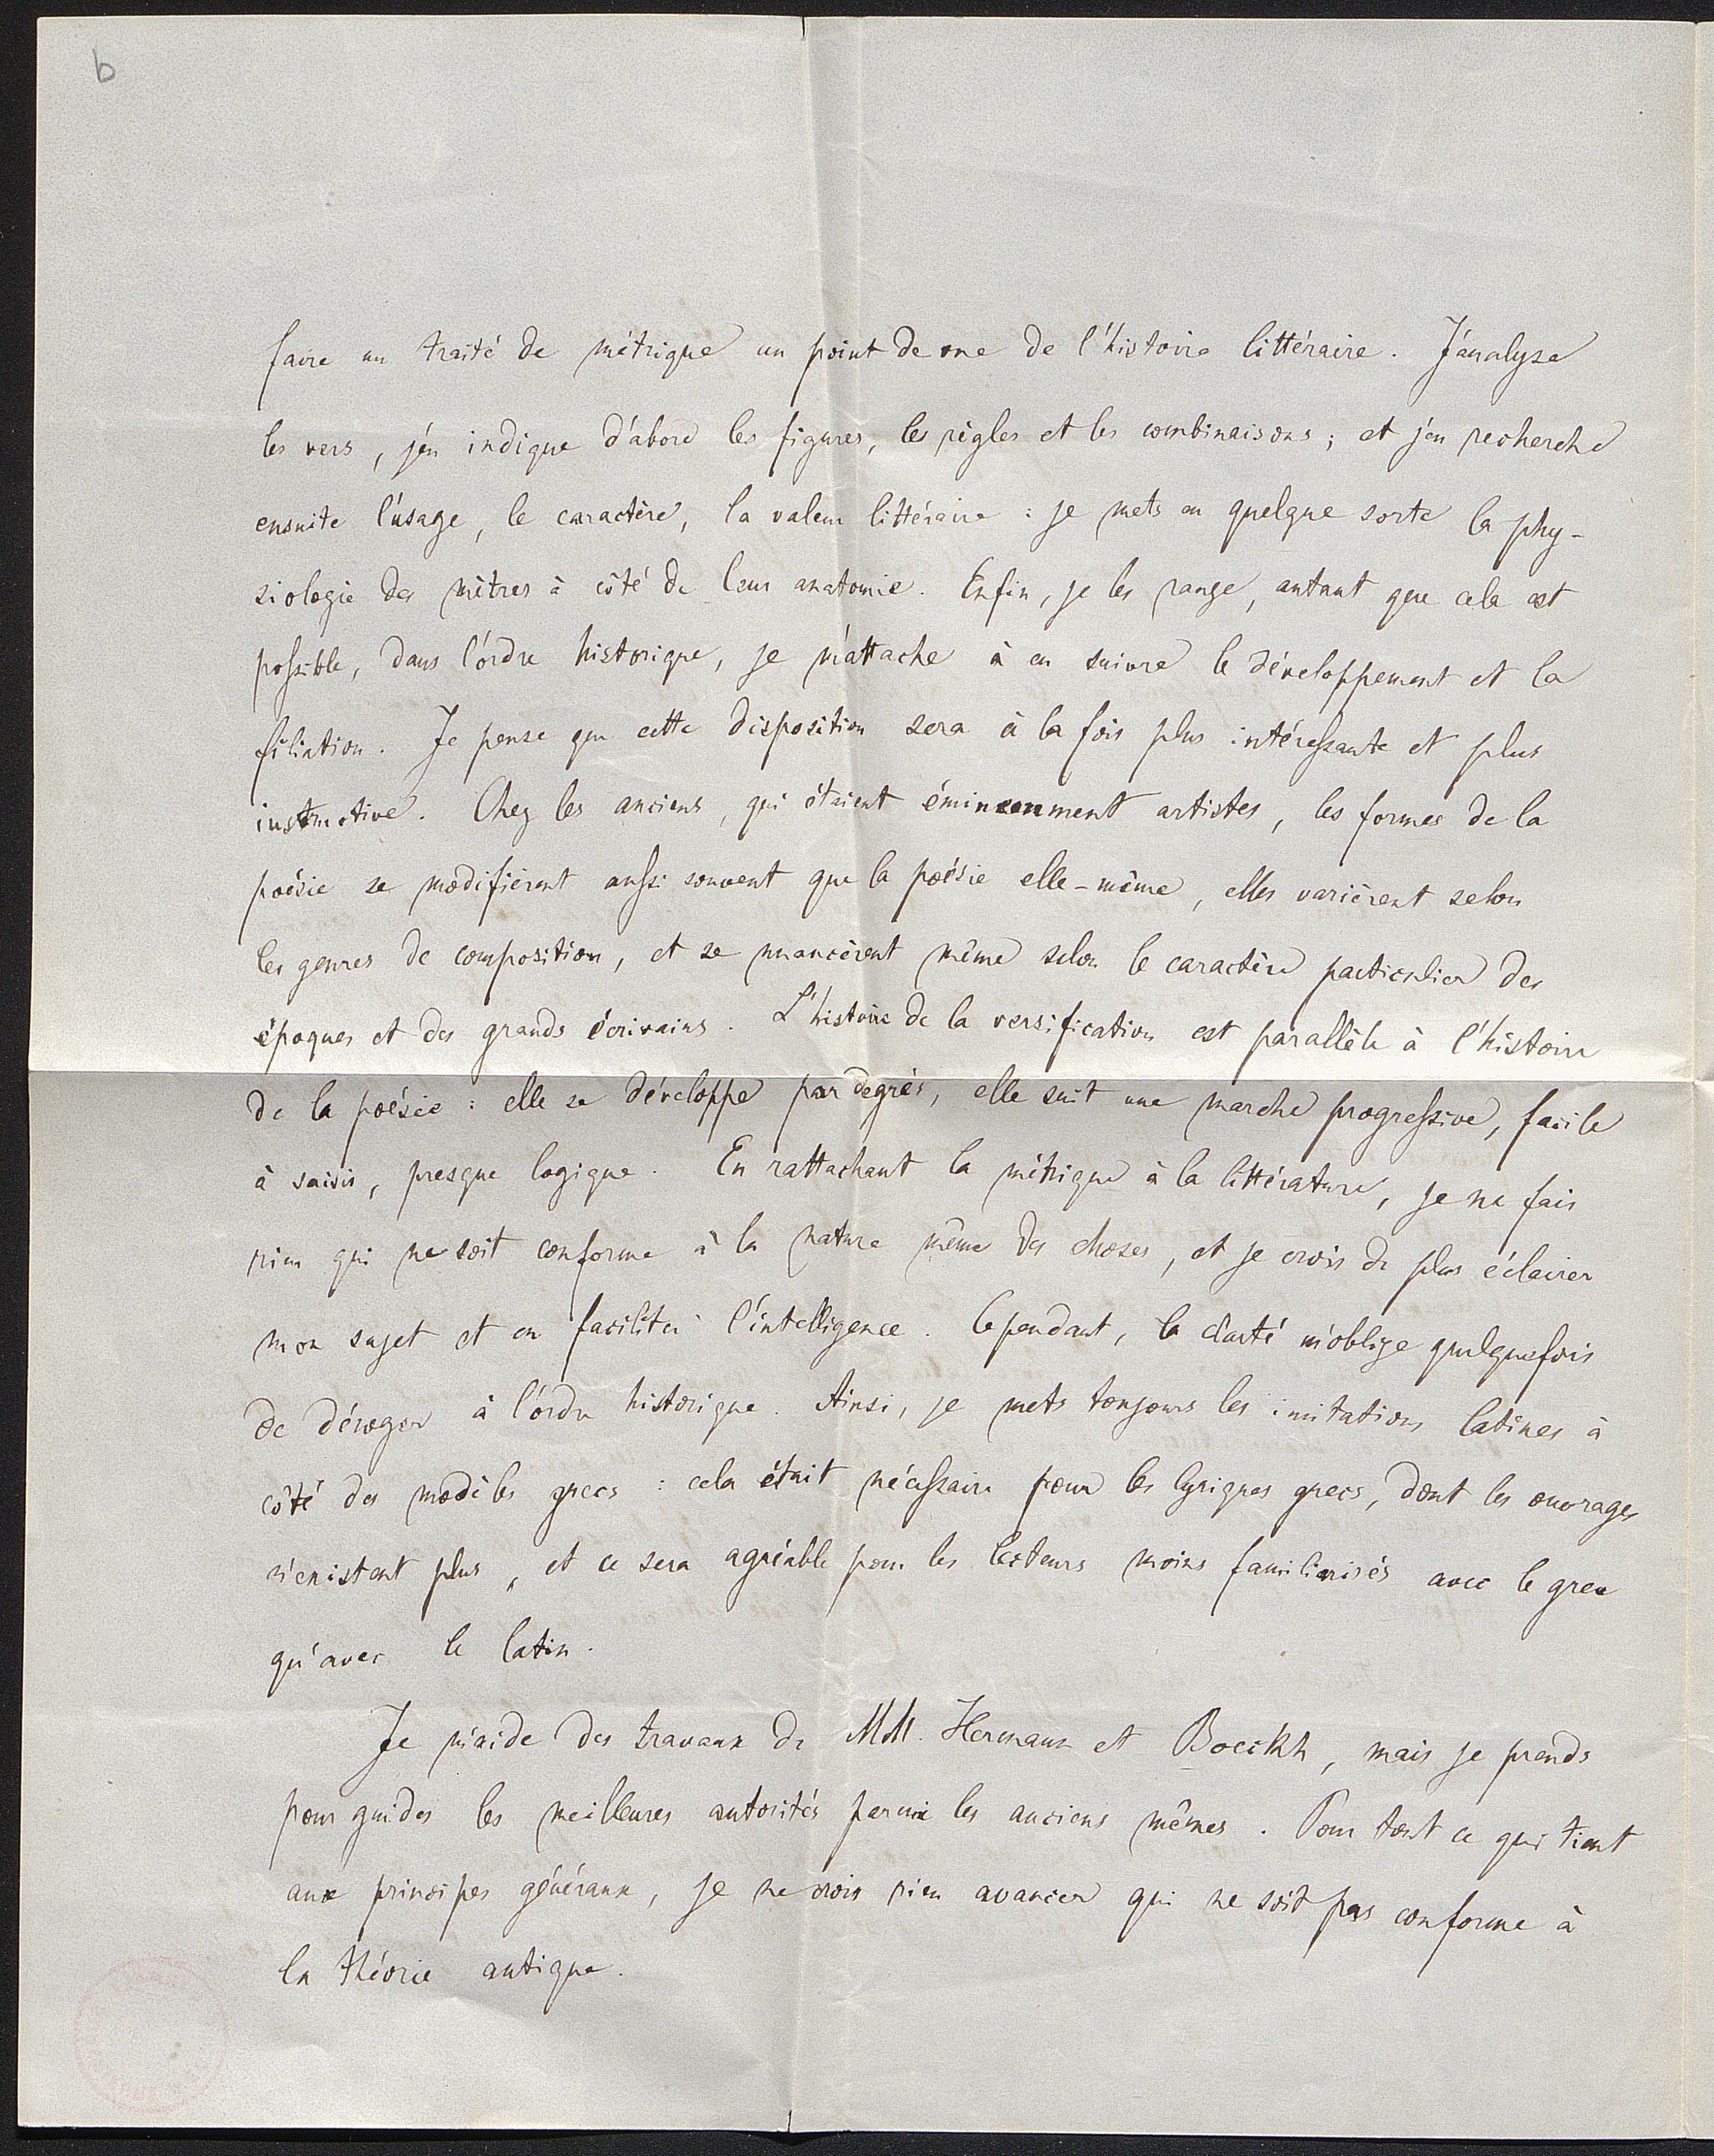 b
faire un traité de métrique au point de vue de l'histoire littéraire. J'analyse
les vers, j'en indique d'abord les figures, les règles et les combinaisons; et j'en recherche
ensuite l'usage, le caractère, la valeur littéraire : je mets en quelque sorte la phy-
siologie des mètres à côté de leur anatomie. Enfin, je les range, autant que cela est
possible, dans l'ordre historique, je m'attache à en suivre le développement et la
filiation. Je pense que cette disposition sera à la fois plus intéressante et plus
instructive. Chez les anciens, qui étaient éminemment artistes, les formes de la
poésie se modifièrent aussi souvent que la poésie elle-même, elles varièrent selon
les genres de composition, et se nuancèrent même selon le caractère particulier des
époques et des grands écrivains. L'histoire de la versification est parallèle à l'histoire
de la poésie : elle se développe par degrés, elle suit une marche progressive, facile
à saisir, presque logique. En rattachant la métrique à la littérature, je ne fais
rien qui ne soit conforme à la nature même des choses, et je crois de plus éclairer
mon sujet et en faciliter l'intelligence. Cependant, la clarté m'oblige quelquefois
de déroger à l'ordre historique. Ainsi, je mets toujours les imitations latines à
côté des modèles grecs : cela était nécessaire pour les lyriques grecs, dont les ouvrages
n'existent plus, et ce sera agréable pour les lecteurs moins familiarisés avec le grec
qu'avec le latin.
Je m'aide des travaux de MM. Hermann et Boeckh, mais je prends
pour guides les meilleures autorités parmi les anciens mêmes. Pour tout ce qui tient
aux principes généraux, je ne crois rien avancer qui ne soit pas conforme à
la théorie antique.